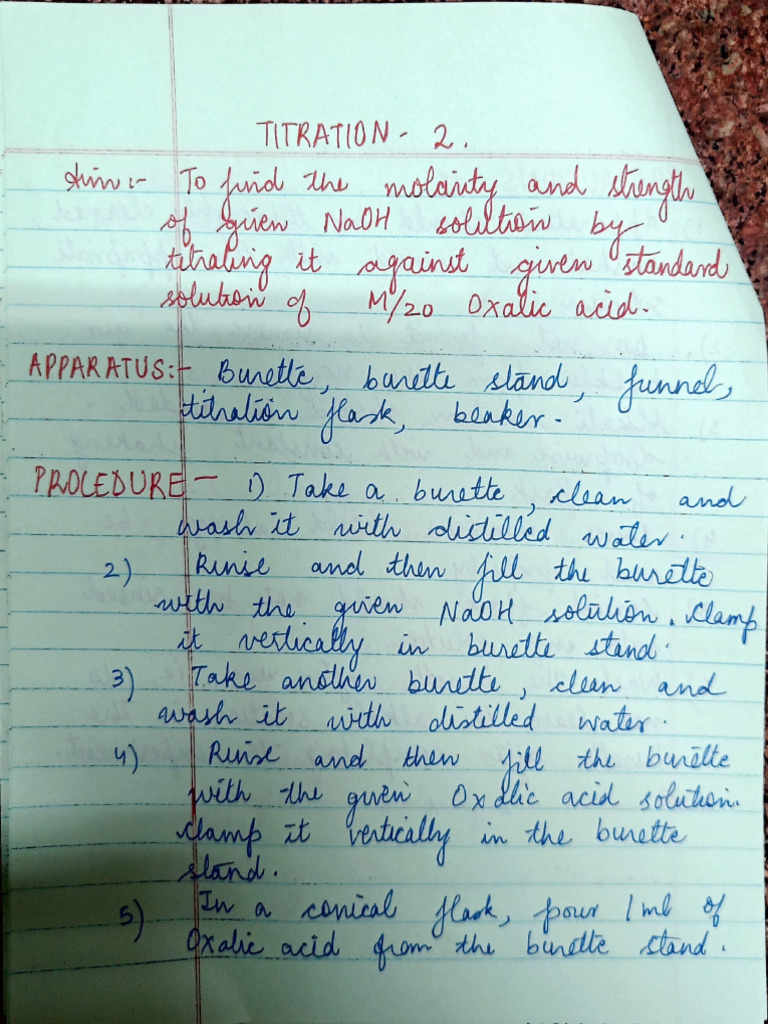 TITRATION - 2.
Aim :- To find the molarity and strength
of given NaOH solution by
titrating it against given standard
solution of M/20 Oxalic acid.
APPARATUS:- Burette, burette stand, funnel,
titration flask, beaker.
PROCEDURE - 1) Take a burette, clean and
wash it with distilled water.
2) Rinse and then fill the burette
with the given NaOH solution. Clamp
it vertically in burette stand.
3) Take another burette, clean and
wash it with distilled water.
4) Rinse and then fill the burette
with the given Oxalic acid solution.
Clamp it vertically in the burette
stand.
5) In a conical flask, pour 1 ml of
Oxalic acid from the burette stand.